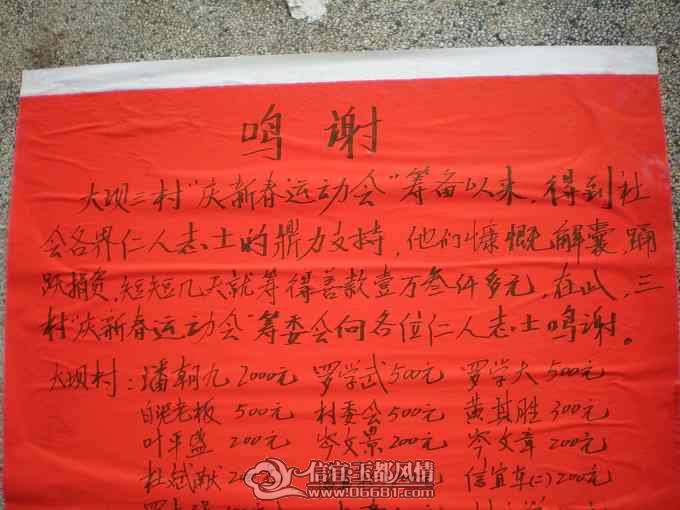 鸣谢
大坝三村“庆新春运动会”筹备以来，得到社
会各界仁人志士的鼎力支持，他们慷慨解囊，踊
跃捐资，短短几天就筹得善款壹万叁仟多元，在此，三
村“庆新春运动会”筹委会向各位仁人志士鸣谢。
大坝村：潘朝九 2000元 罗学武 500元 罗学大 500元
老板 500元 村委会 500元 黄其胜 300元
叶平盛 200元 岑文景 200元 岑文章 200元
杜斌献 信宜车(二) 200元
信宜玉都风情
www.06681.com